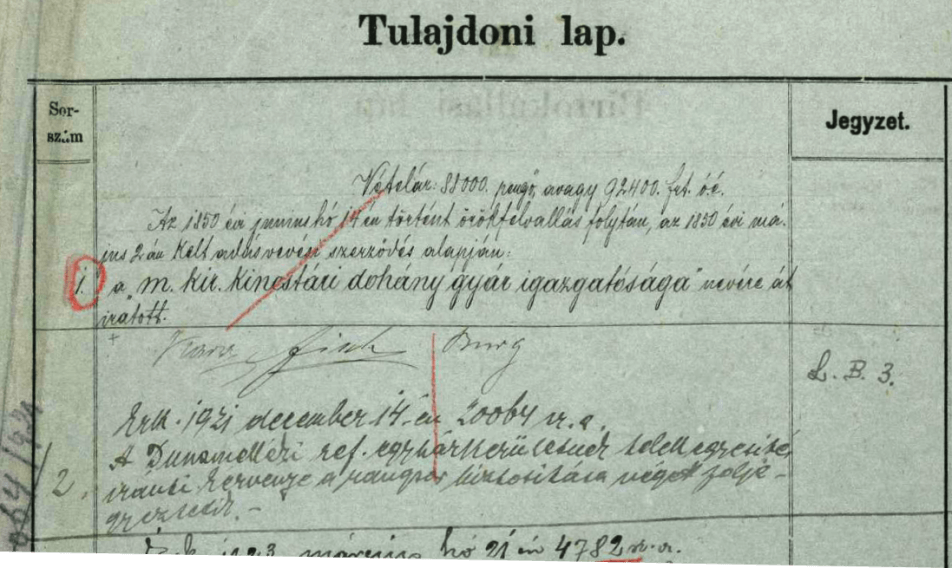 Tulajdoni lap.
Sor-
szám
Jegyzet.
Vételár: 88000. pengő, avagy 92400. frt. óé.
Az 1850 évi junius hó 14 én történt örökfelvallás folytán, az 1850 évi má-
jus 2 án kelt adás vevési szerződés alapján:
1. a "m. kir. kincstári dohány gyár igazgatósága" nevére át
iratott.
Burg
L. B. 3.
Érk. 1921 december 14. én 20064 sz. a.
2. A Dunamelléki ref. egyházkerületnek telekegyesítés
iránti kérvénye a rangsor biztosítása végett felje-
gyeztetik. -
1923 március hó 21 én 4782